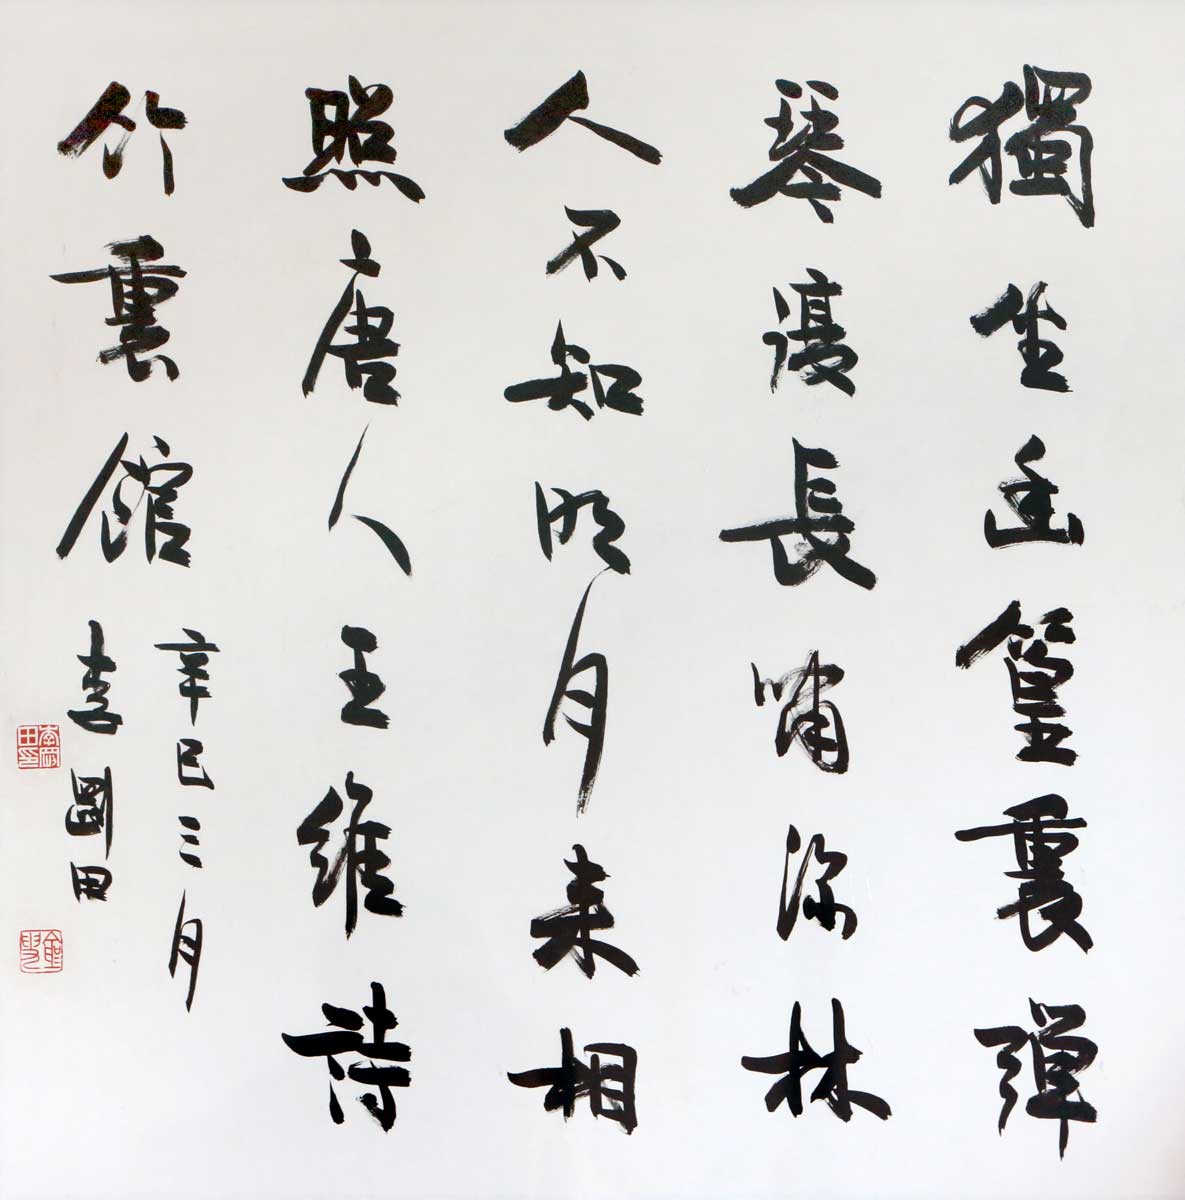 獨坐幽篁裏彈
琴復長嘯深林
人不知明月來相
照唐人王維詩
竹裏館
辛巳三月
李剛田
李剛田印